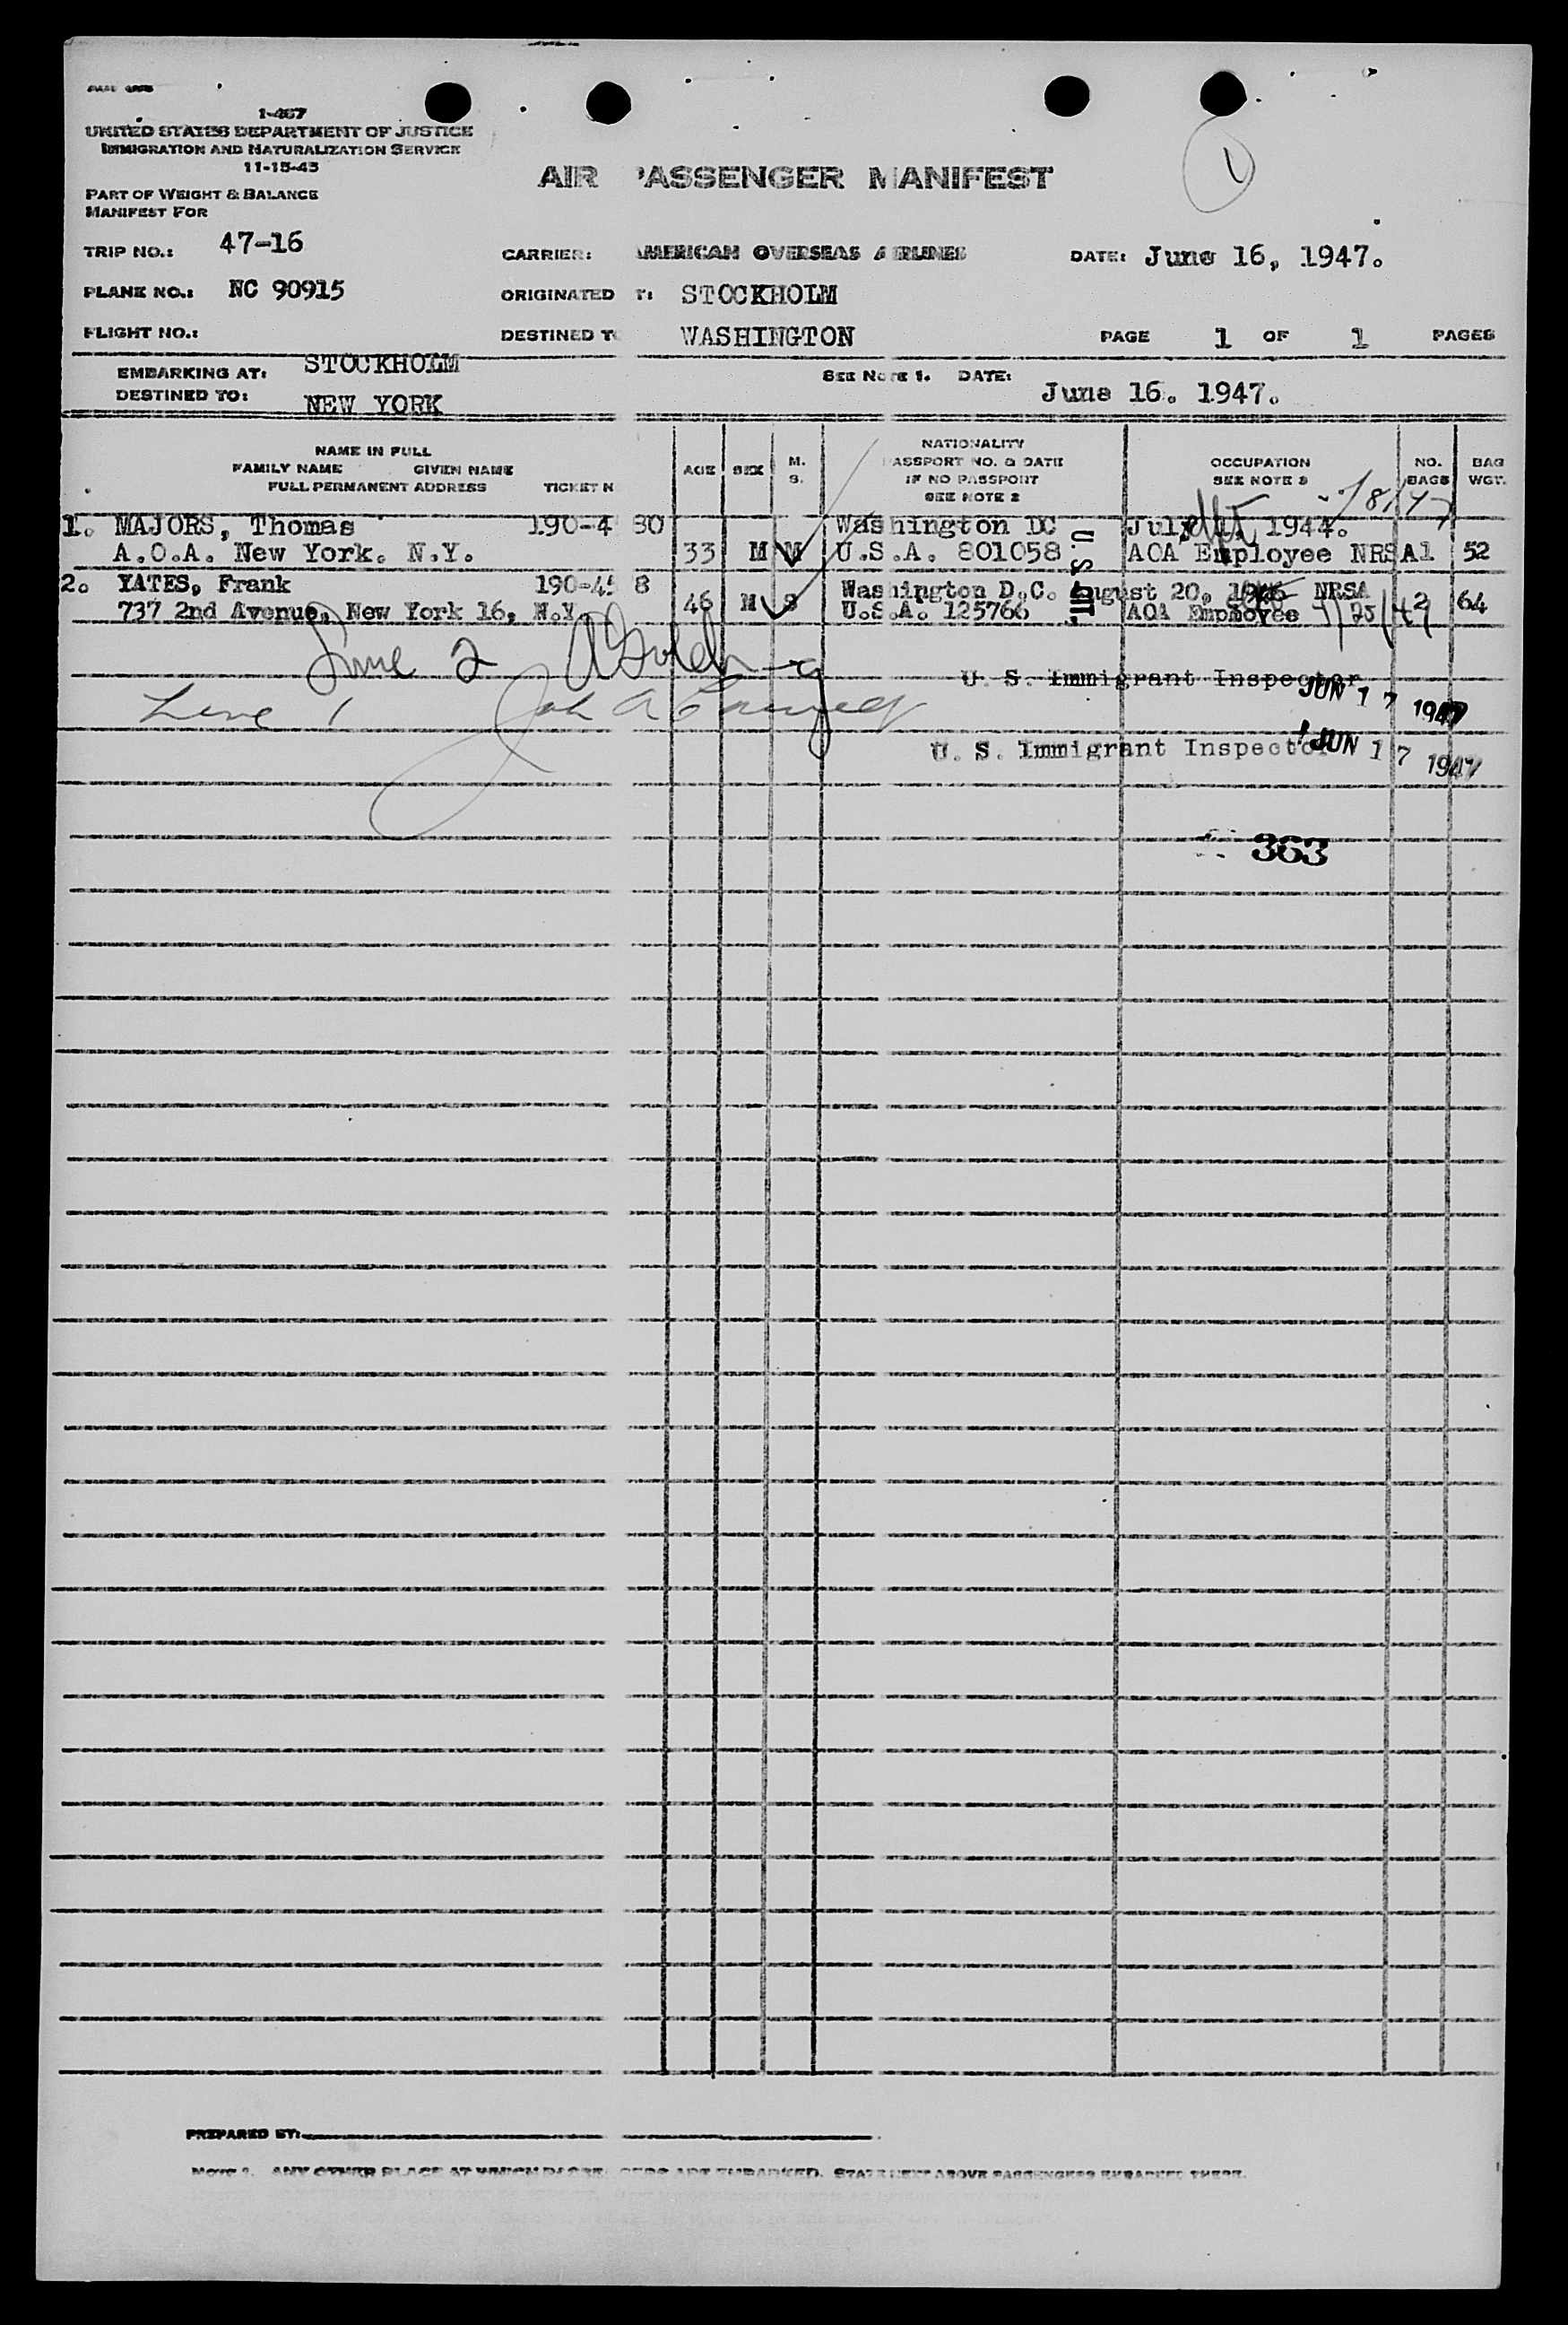 1-467
UNITED STATES DEPARTMENT OF JUSTICE
IMMIGRATION AND NATURALIZATION SERVICE
11-15-45
AIR PASSENGER MANIFEST
PART OF WEIGHT & BALANCE
MANIFEST FOR
TRIP NO.: 47-16 CARRIER: AMERICAN OVERSEAS AIRLINES DATE: June 16, 1947.
PLANE NO.: NC 90915 ORIGINATED T: STOCKHOLM
FLIGHT NO.: DESTINED TO WASHINGTON PAGE 1 OF 1 PAGES
EMBARKING AT: STOCKHOLM SEE NOTE 1. DATE: June 16. 1947.
DESTINED TO: NEW YORK
NAME IN FULL
FAMILY NAME GIVEN NAME
FULL PERMANENT ADDRESS TICKET N
AGE SEX M. S.
NATIONALITY
PASSPORT NO. & DATE
IF NO PASSPORT
SEE NOTE 2
OCCUPATION
SEE NOTE 3
NO. BAGS
BAG WGT.
1. MAJORS, Thomas 190-4 30 Washington DC July 1, 1944.
A.O.A. New York. N.Y. 33 M M U.S.A. 801058 AOA Employee NRSA 1 52
2. YATES, Frank 190-45 8 Washington D.C. August 20, 1946 NRSA
737 2nd Avenue, New York 16, N.Y. 46 M S U.S.A. 125766 AOA Employee 2 64
Line 2
U. S. Immigrant Inspector JUN 17 1947
Line 1 John A
U. S. Immigrant Inspector JUN 17 1947
363
PREPARED BY:
NOTE 1. ANY OTHER PLACE AT WHICH PASSENGERS ARE EMBARKED. STATE NEXT ABOVE PASSENGERS EMBARKED THERE.